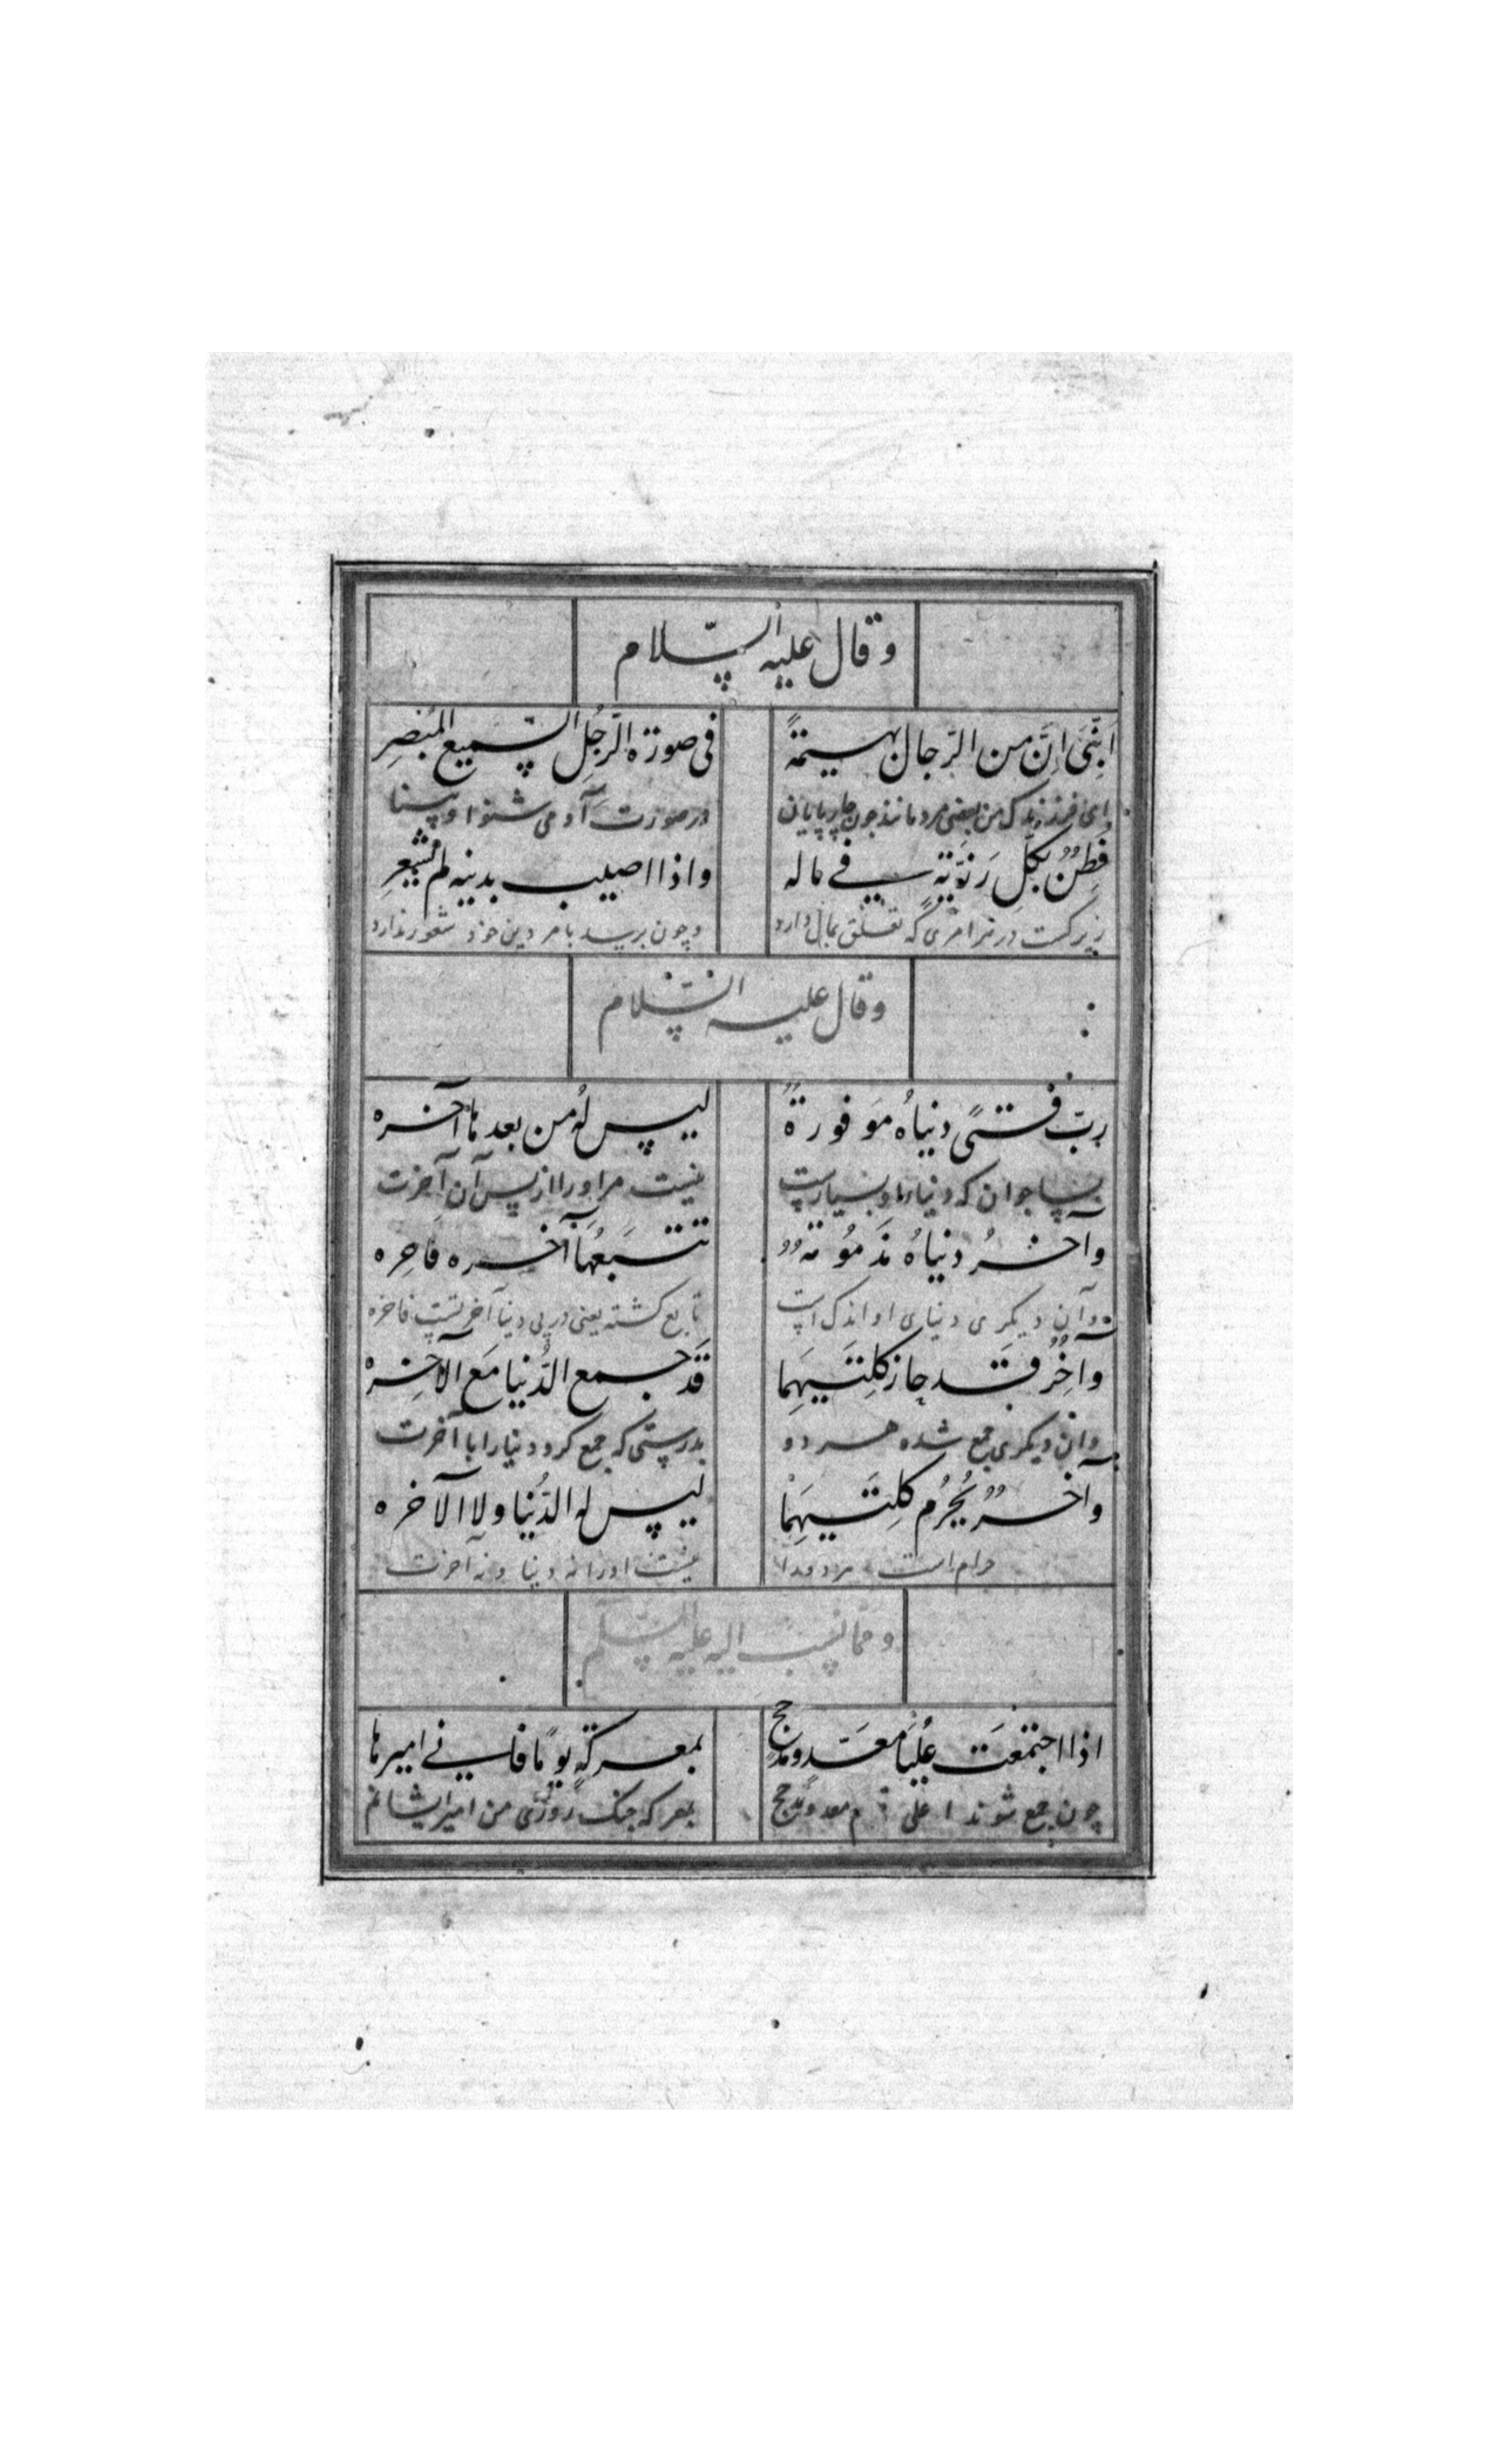 وقال علیه السّلام
اَبُنَیَّ اِنَّ من الرّجال بهیمةً فی صورة الرّجُلِ السّمیع المُبْصِرِ
ای فرزندک من بعضی مردمانند چون چارپایان در صورت آدمی شنوا و بینا
فَطِنٌ بکلّ رَزیّةٍ فی ماله واذا اصیب بدینه لم یشعرِ
زیرکست در هر امری که تعلق بمال دارد و چون برسد بامر دین خود شعور ندارد
وقال علیه السّلام
ربّ فتیً دنیاهُ مَوفورةٌ لیس لهُ من بعدها آخره
بسا جوان که دنیا او بسیارست نیست مر او را از پس آن آخرت
وآخرُ دنیاهُ مَذمُومةٌ تتبَعُها آخره فاخِره
وآن دیگری دنیای او اندک است تابع گشته یعنی در پی دنیا آخرتست فاخره
وآخَرُ قد حاز کِلتَیهِما قَد جمع الدُّنیا مَع الآخِرهْ
وان دیگری جمع شده هر دو بدرستی که جمع کرد دنیا را با آخرت
وآخرٌ یُحْرَمُ کِلتَیهِما لیس له الدُّنیا ولا الآخره
حرام است نیست او را نه دنیا و نه آخرت
وممّا نُسِب الیه علیه السّلم
اذا اجتمعَت عُلیا مَعَدّ ومَذحج بمعرکةٍ یومًا فانی امیرها
چون جمع شوند اعلی قوم معد ومذحج بمعرکه جنک روزی من امیر ایشانم